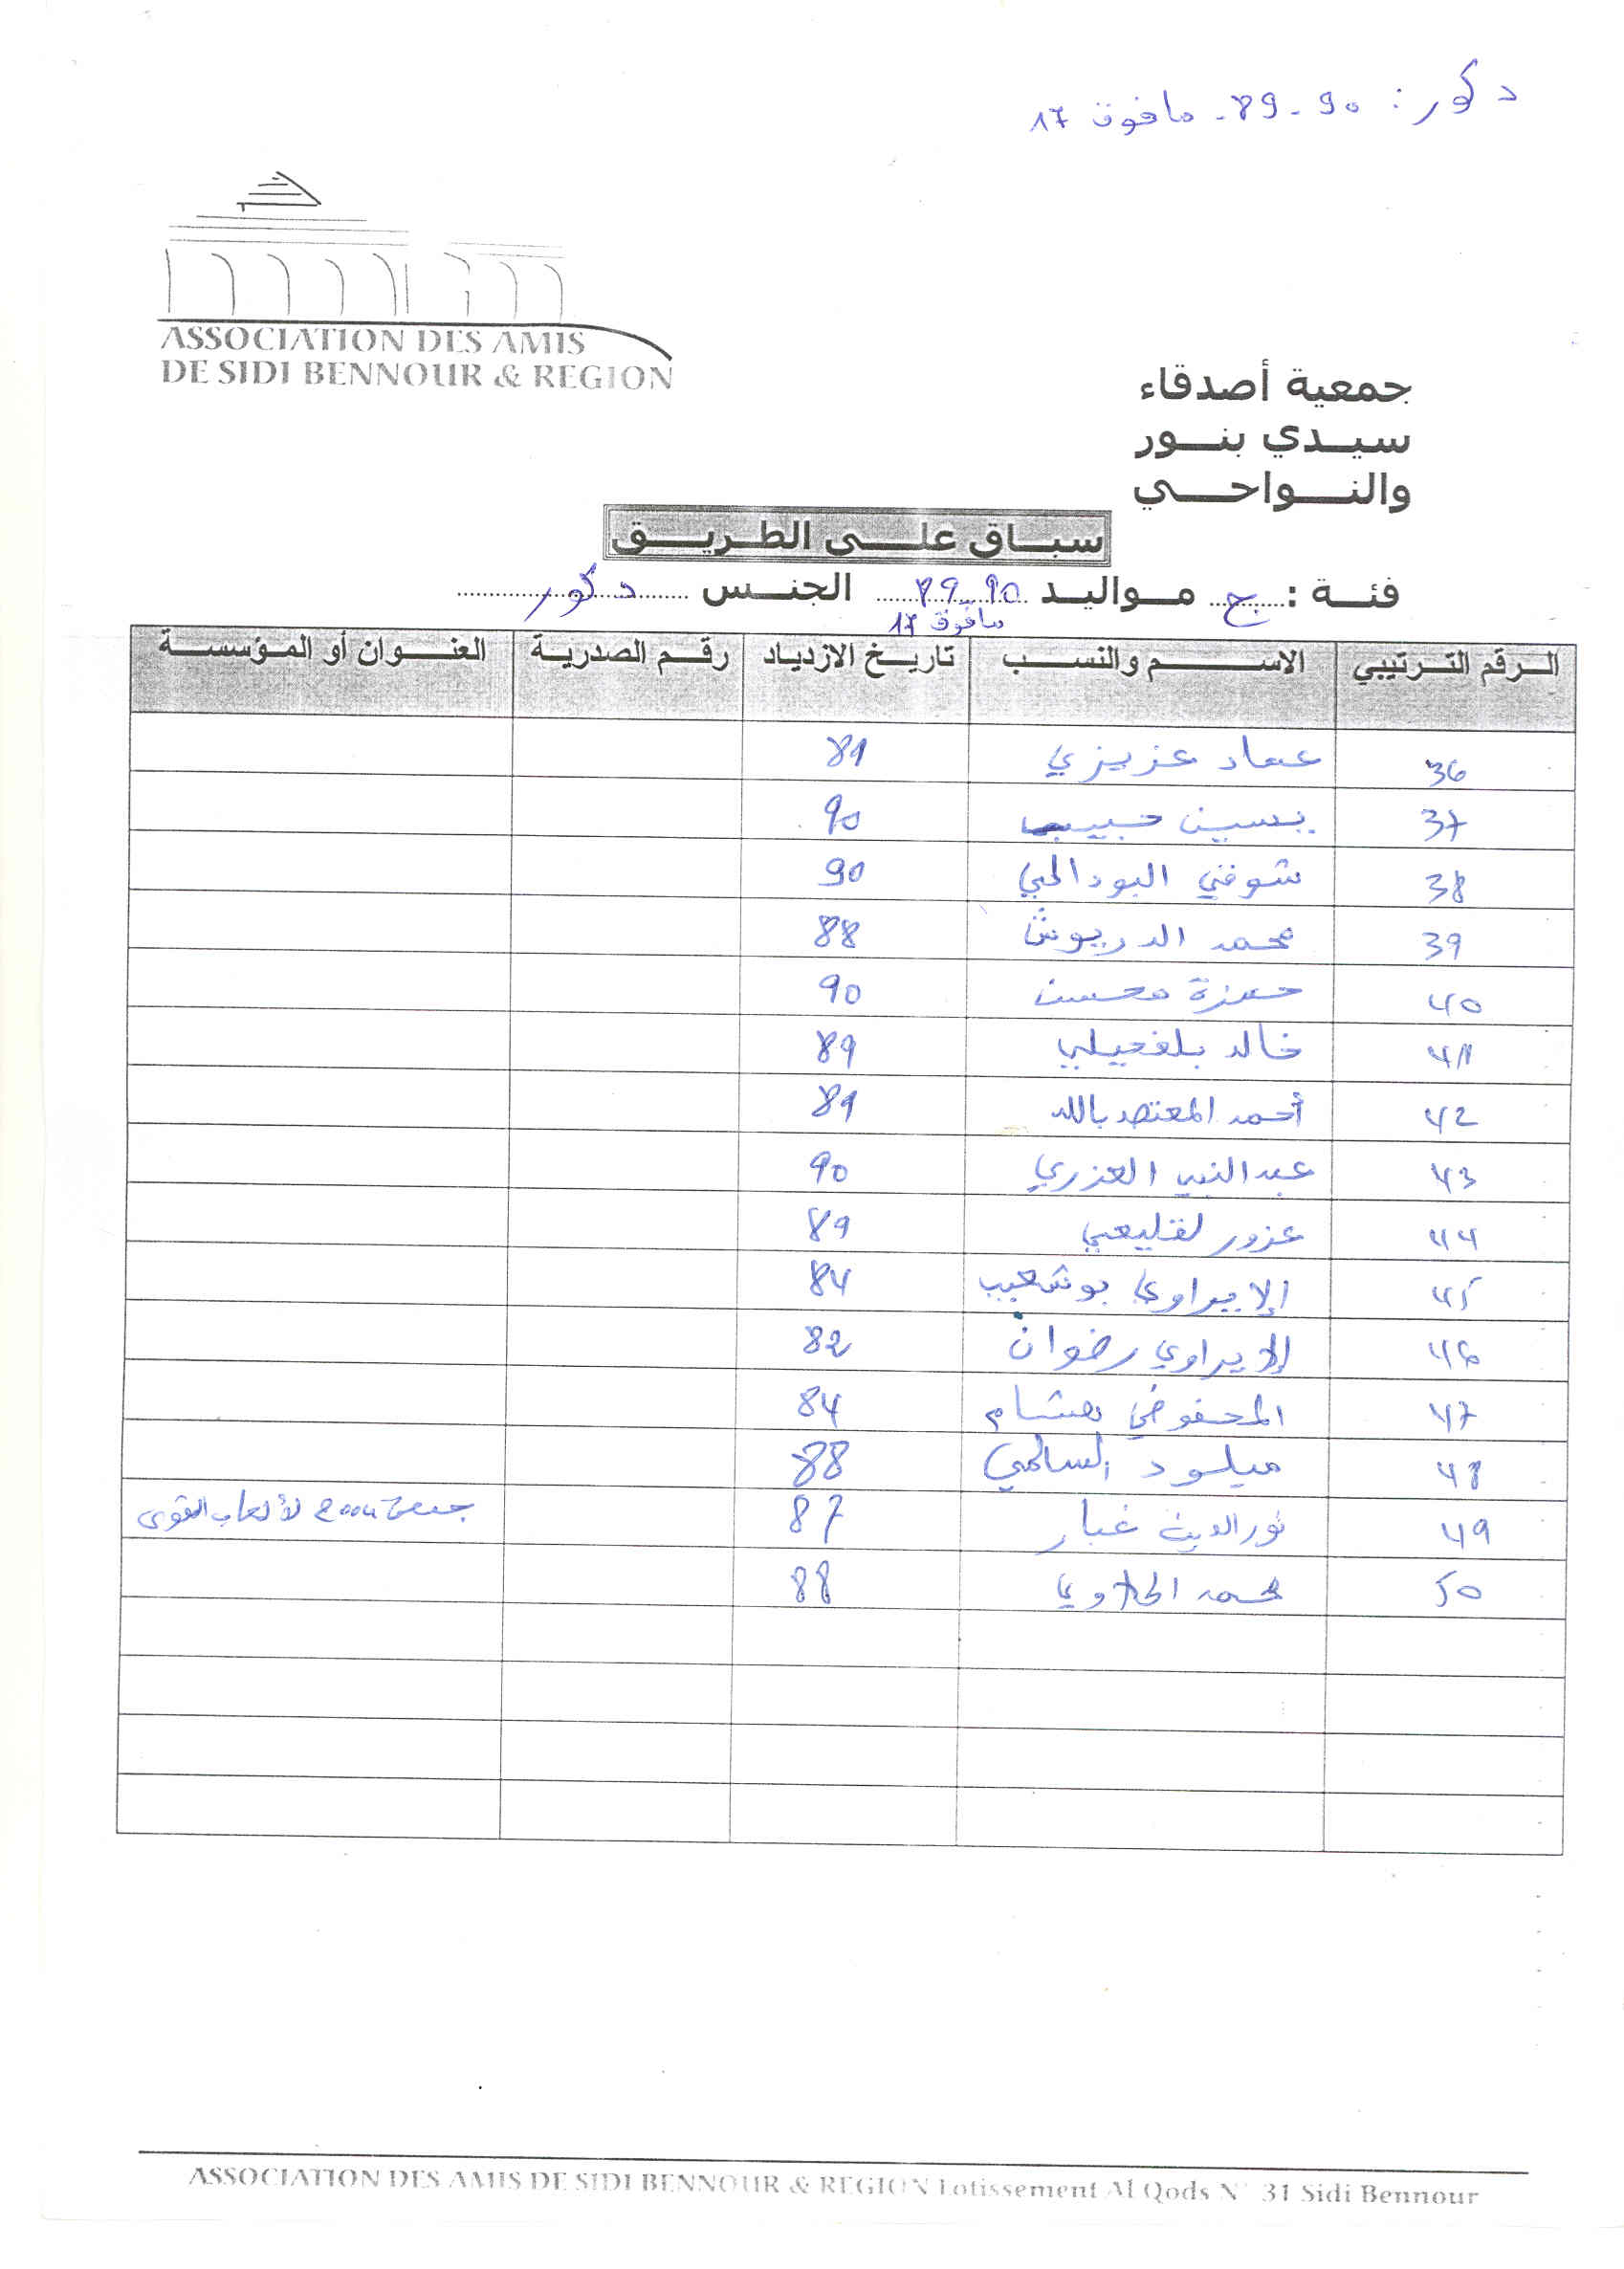 دكور: 90-89- مافوق 17
ASSOCIATION DES AMIS
DE SIDI BENNOUR & REGION
جمعية أصدقاء
سيدي بنور
والنواحي
سباق على الطريق
فئة : ج مواليد 90 89 الجنس دكور
مافوق 17
الرقم الترتيبي الاسم والنسب تاريخ الازدياد رقم الصدرية العنوان أو المؤسسة
36 عماد عزيزي 81
37 يسين حبيب 90
38 شوقي البودالي 90
39 محمد الدريوش 88
40 حمزة محسن 90
41 خالد 89
42 أحمد المعتصد بالله 81
43 عبد النبي العزري 90
44 عزور لقليعي 89
45 الإيراوي بوشعيب 84
46 الإيراوي رضوان 82
47 المحفوضي هشام 84
48 ميلود السالمي 88
49 نور الدين غبار 87 جمعية 2004 لألعاب القوى
50 محمد 88
ASSOCIATION DES AMIS DE SIDI BENNOUR & REGION Lotissement Al Qods N° 31 Sidi Bennour